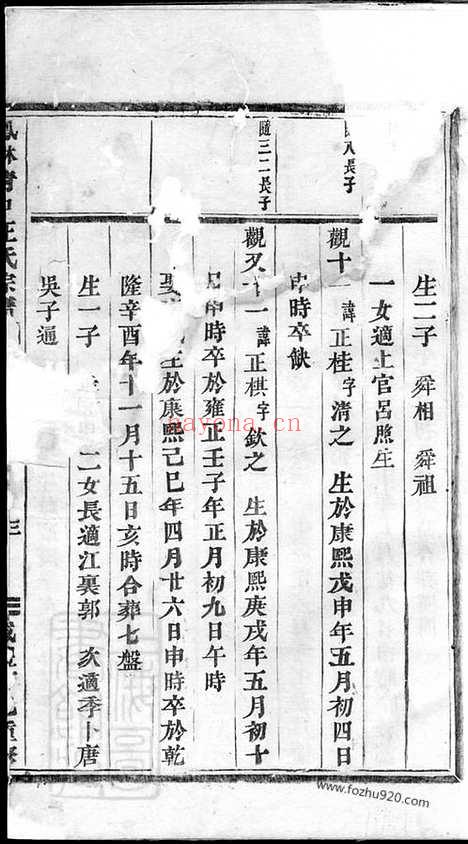 生二子 舜相 舜祖
一女適上官呂熈生
八長子
觀十一諱正桂字清之 生於康熈戊申年五月初四日
申時卒缺
隨三二長子
觀又十一諱正棋字欽之 生於康熈庚戌年五月初十
申時卒於雍正壬子年正月初九日午時
生於康熈己巳年四月廿六日申時卒於乾
隆辛酉年十一月十五日亥時合葬七盤
生一子 二女長適江裏郭 次適季卜唐
吳子通
林 王氏宗譜
三
重修
hayona.cn
www.fozhu920.com